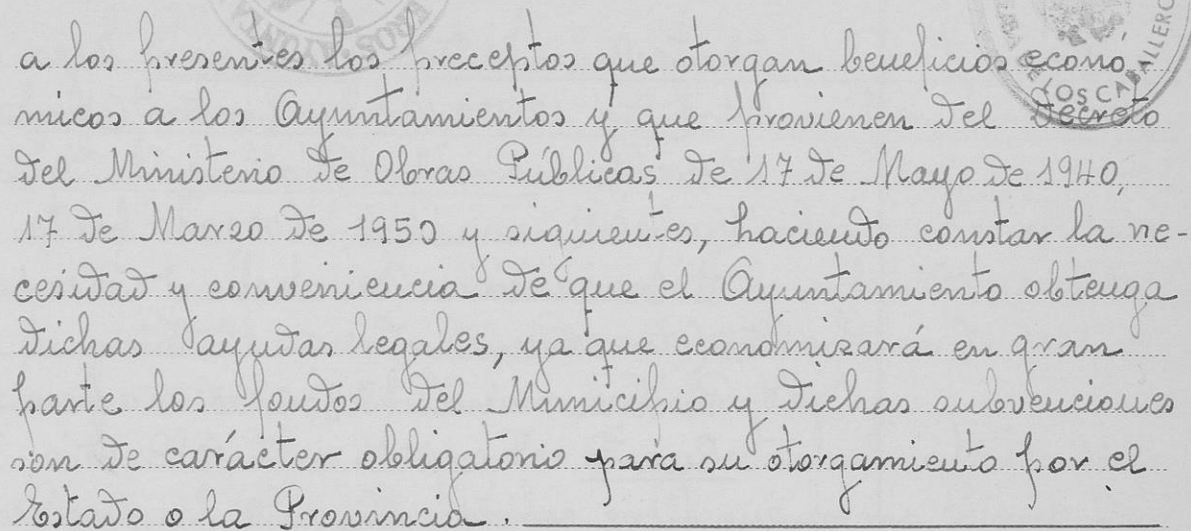 a los presentes los preceptos que otorgan beneficios econó-
micos a los Ayuntamientos y que provienen del Decreto
del Ministerio de Obras Públicas de 17 de Mayo de 1940,
17 de Marzo de 1950 y siguientes, haciendo constar la ne-
cesidad y conveniencia de que el Ayuntamiento obtenga
dichas ayudas legales, ya que economizará en gran
parte los fondos del Municipio y dichas subvenciones
son de carácter obligatorio para su otorgamiento por el
Estado o la Provincia.
LOS CABALLERO